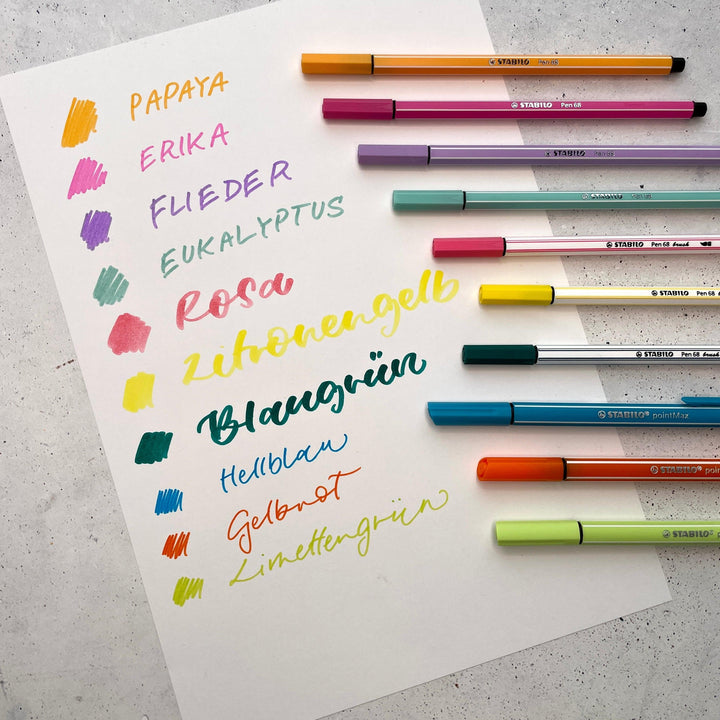 PAPAYA
ERIKA
FLIEDER
EUKALYPTUS
Rosa
Zitronengelb
Blaugrün
Hellblau
Gelbrot
Limettengrün
STABILO Pen 68
STABILO Pen 68
STABILO Pen 68
STABILO Pen 68
STABILO Pen 68 brush
STABILO Pen 68 b
STABILO Pen 68 brush
STABILO® pointMax
STABILO® poin
STABILO® p